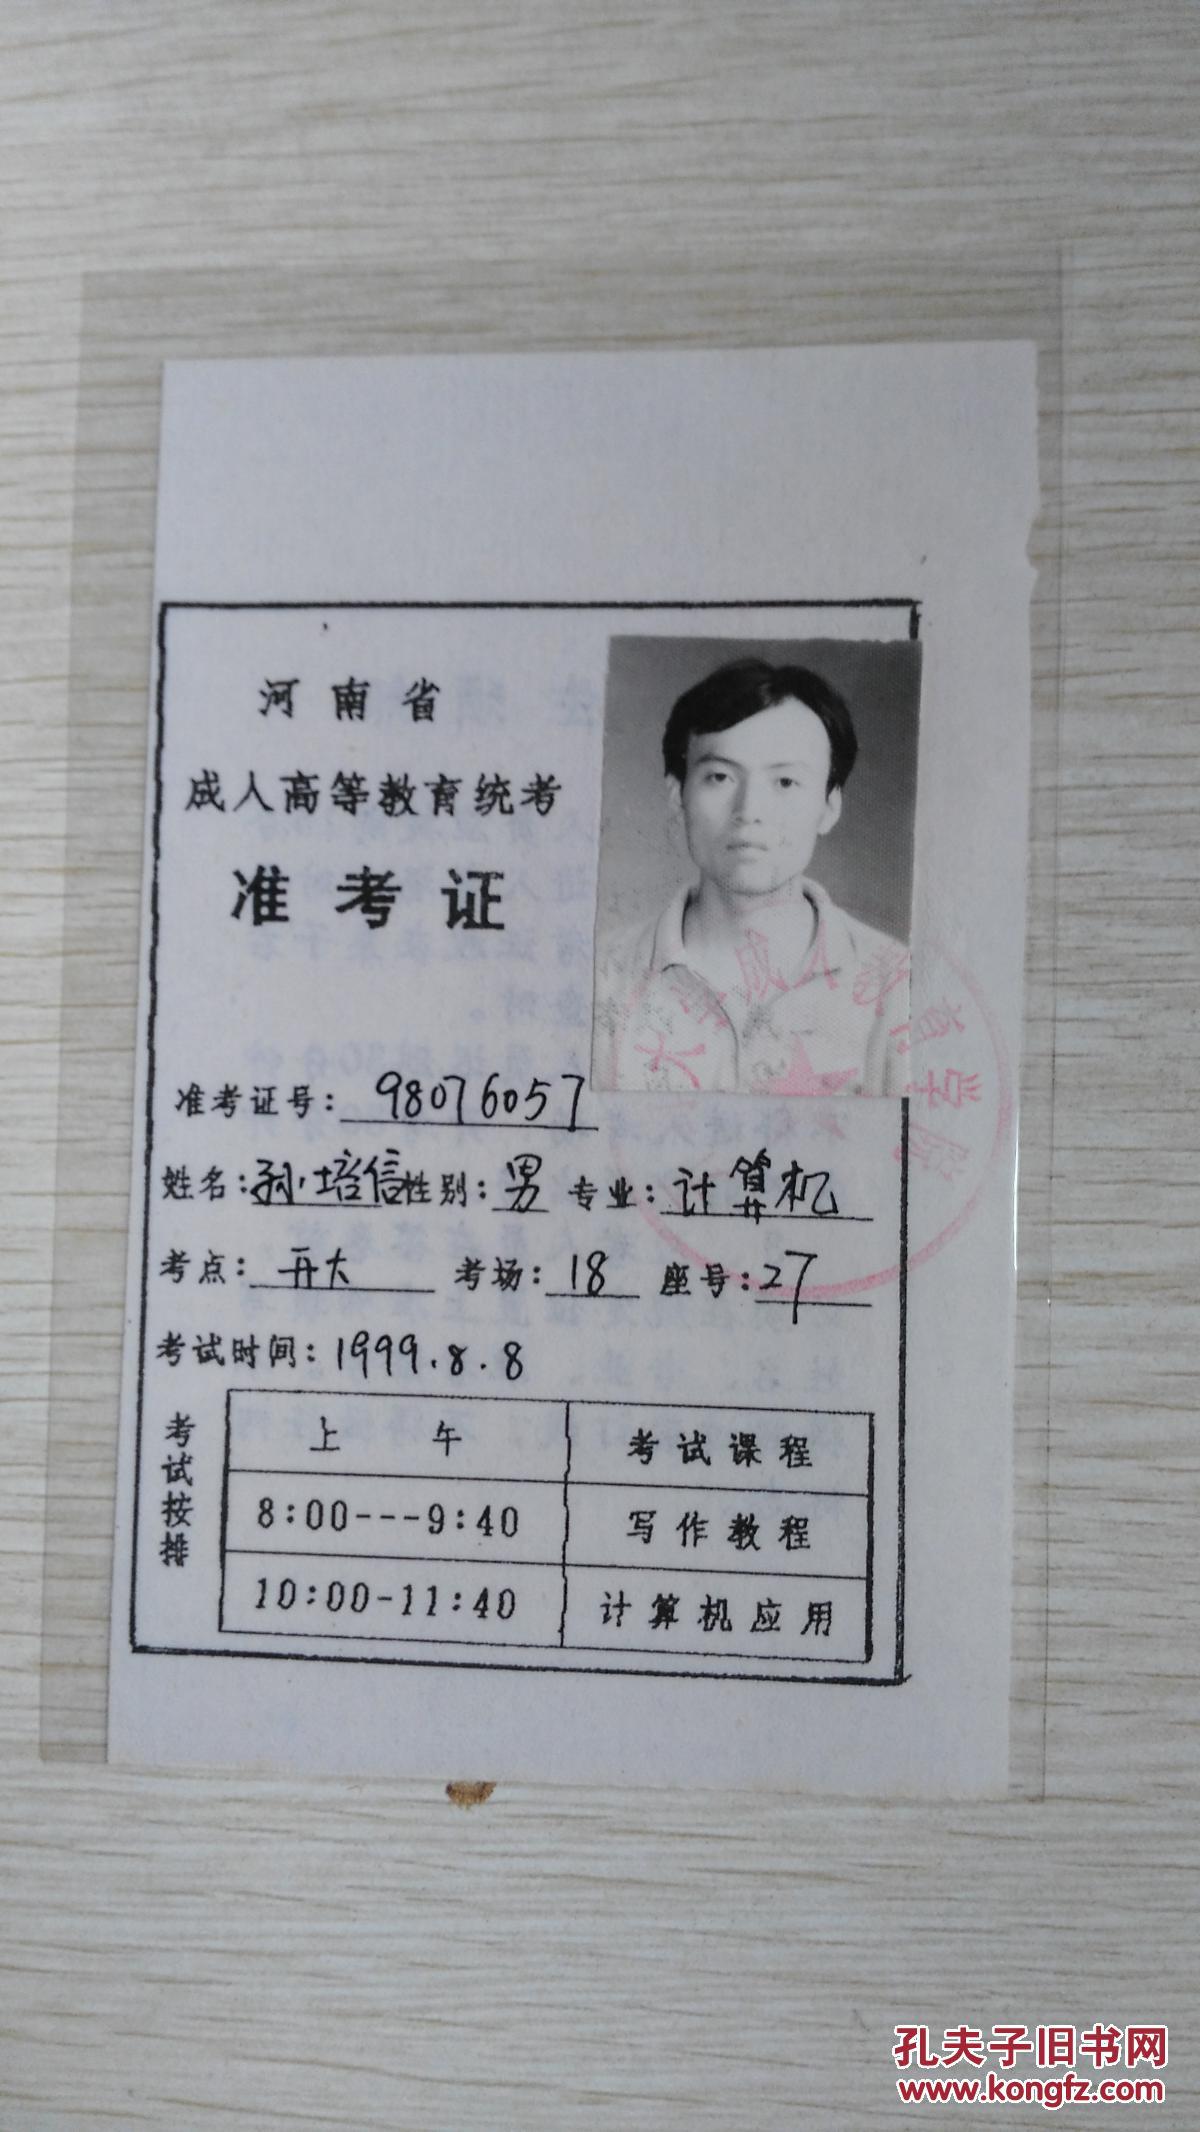 河南省
成人高等教育统考
准考证
准考证号：98076057
姓名：孙培信 性别：男 专业：计算机
考点：开大 考场：18 座号：27
考试时间：1999.8.8
考试按排
上午 考试课程
8:00---9:40 写作教程
10:00-11:40 计算机应用
大学成人教育学院
孔夫子旧书网
www.kongfz.com